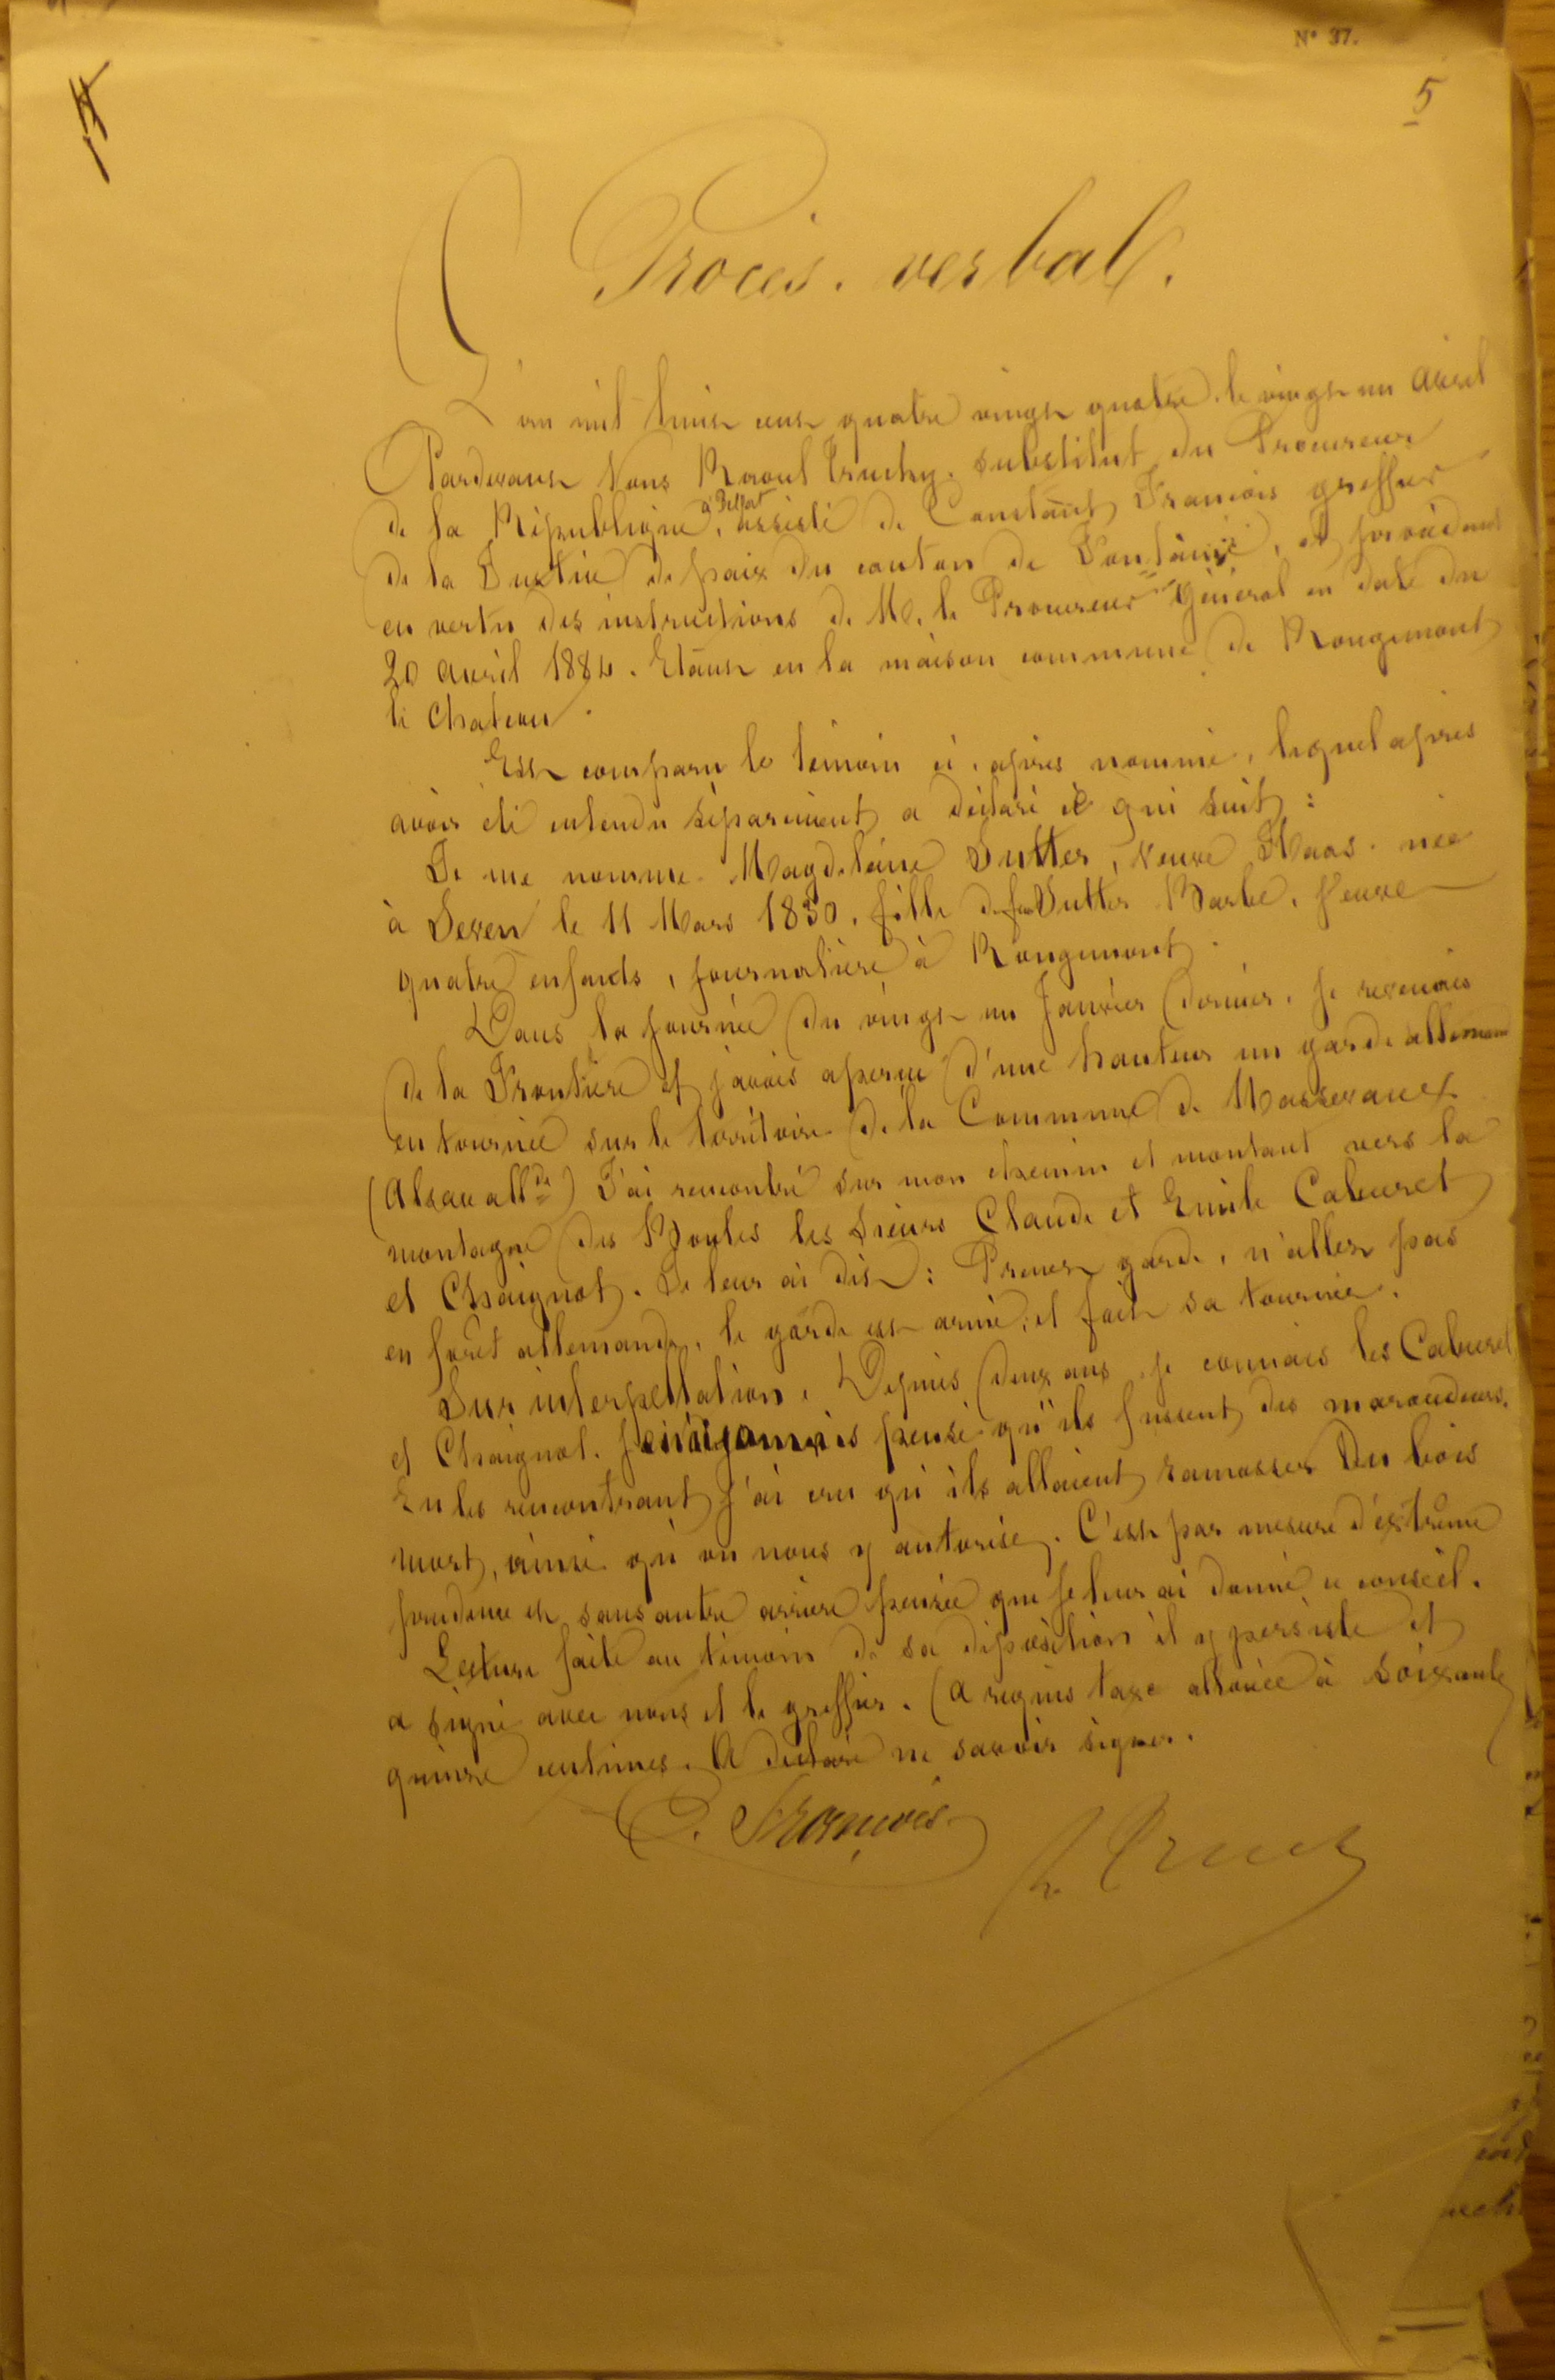 N° 37.
5
Procès-verbal.
L'an mil huit cent quatre vingt quatre le vingt un avril
Pardevant Nous Raoul Truchy, substitut du Procureur
de la République à Belfort, assisté de Constant François greffier
de la Justice de paix du canton de Fontaine, et procédant
en vertu des instructions de M. le Procureur Général en date du
20 avril 1884. Etant en la maison commune de Rougemont
le Chateau.
Est comparu le témoin ci-après nommé, lequel après
avoir été entendu séparément a déclaré ce qui suit :
Je me nomme Magdeleine Sutter, Veuve Haas, née
à Seven le 11 Mars 1830, fille de feu Sutter Barbe, Veuve
quatre enfants, journalière à Rougemont.
Dans la journée du vingt un Janvier dernier, je revenais
de la Frontière et j'avais aperçu d'une hauteur un garde allemand
en tournée sur le territoire de la Commune de Massevaux
(Alsace all.de) J'ai rencontré sur mon chemin et montant vers la
montagne des Boules les sieurs Claude et Emile Cabeuret
et Chaignat. Je leur ai dit : Prenez garde, n'allez pas
en forêt allemande, le garde est armé, et fait sa tournée.
Sur interpellation. Depuis deux ans je connais les Cabeuret
et Chaignat. je n'ai jamais pensé qu'ils fussent des maraudeurs.
En les rencontrant j'ai cru qu'ils allaient ramasser du bois
mort, ainsi qu'on nous y autorise. C'est par mesure d'extrême
prudence et sans autre arrière pensée que je leur ai donné ce conseil.
Lecture faite au témoin de sa déposition il y persiste et
a signé avec nous et le greffier. (A requis taxe allouée à soixante
quinze centimes. A déclaré ne savoir signer.
C. François